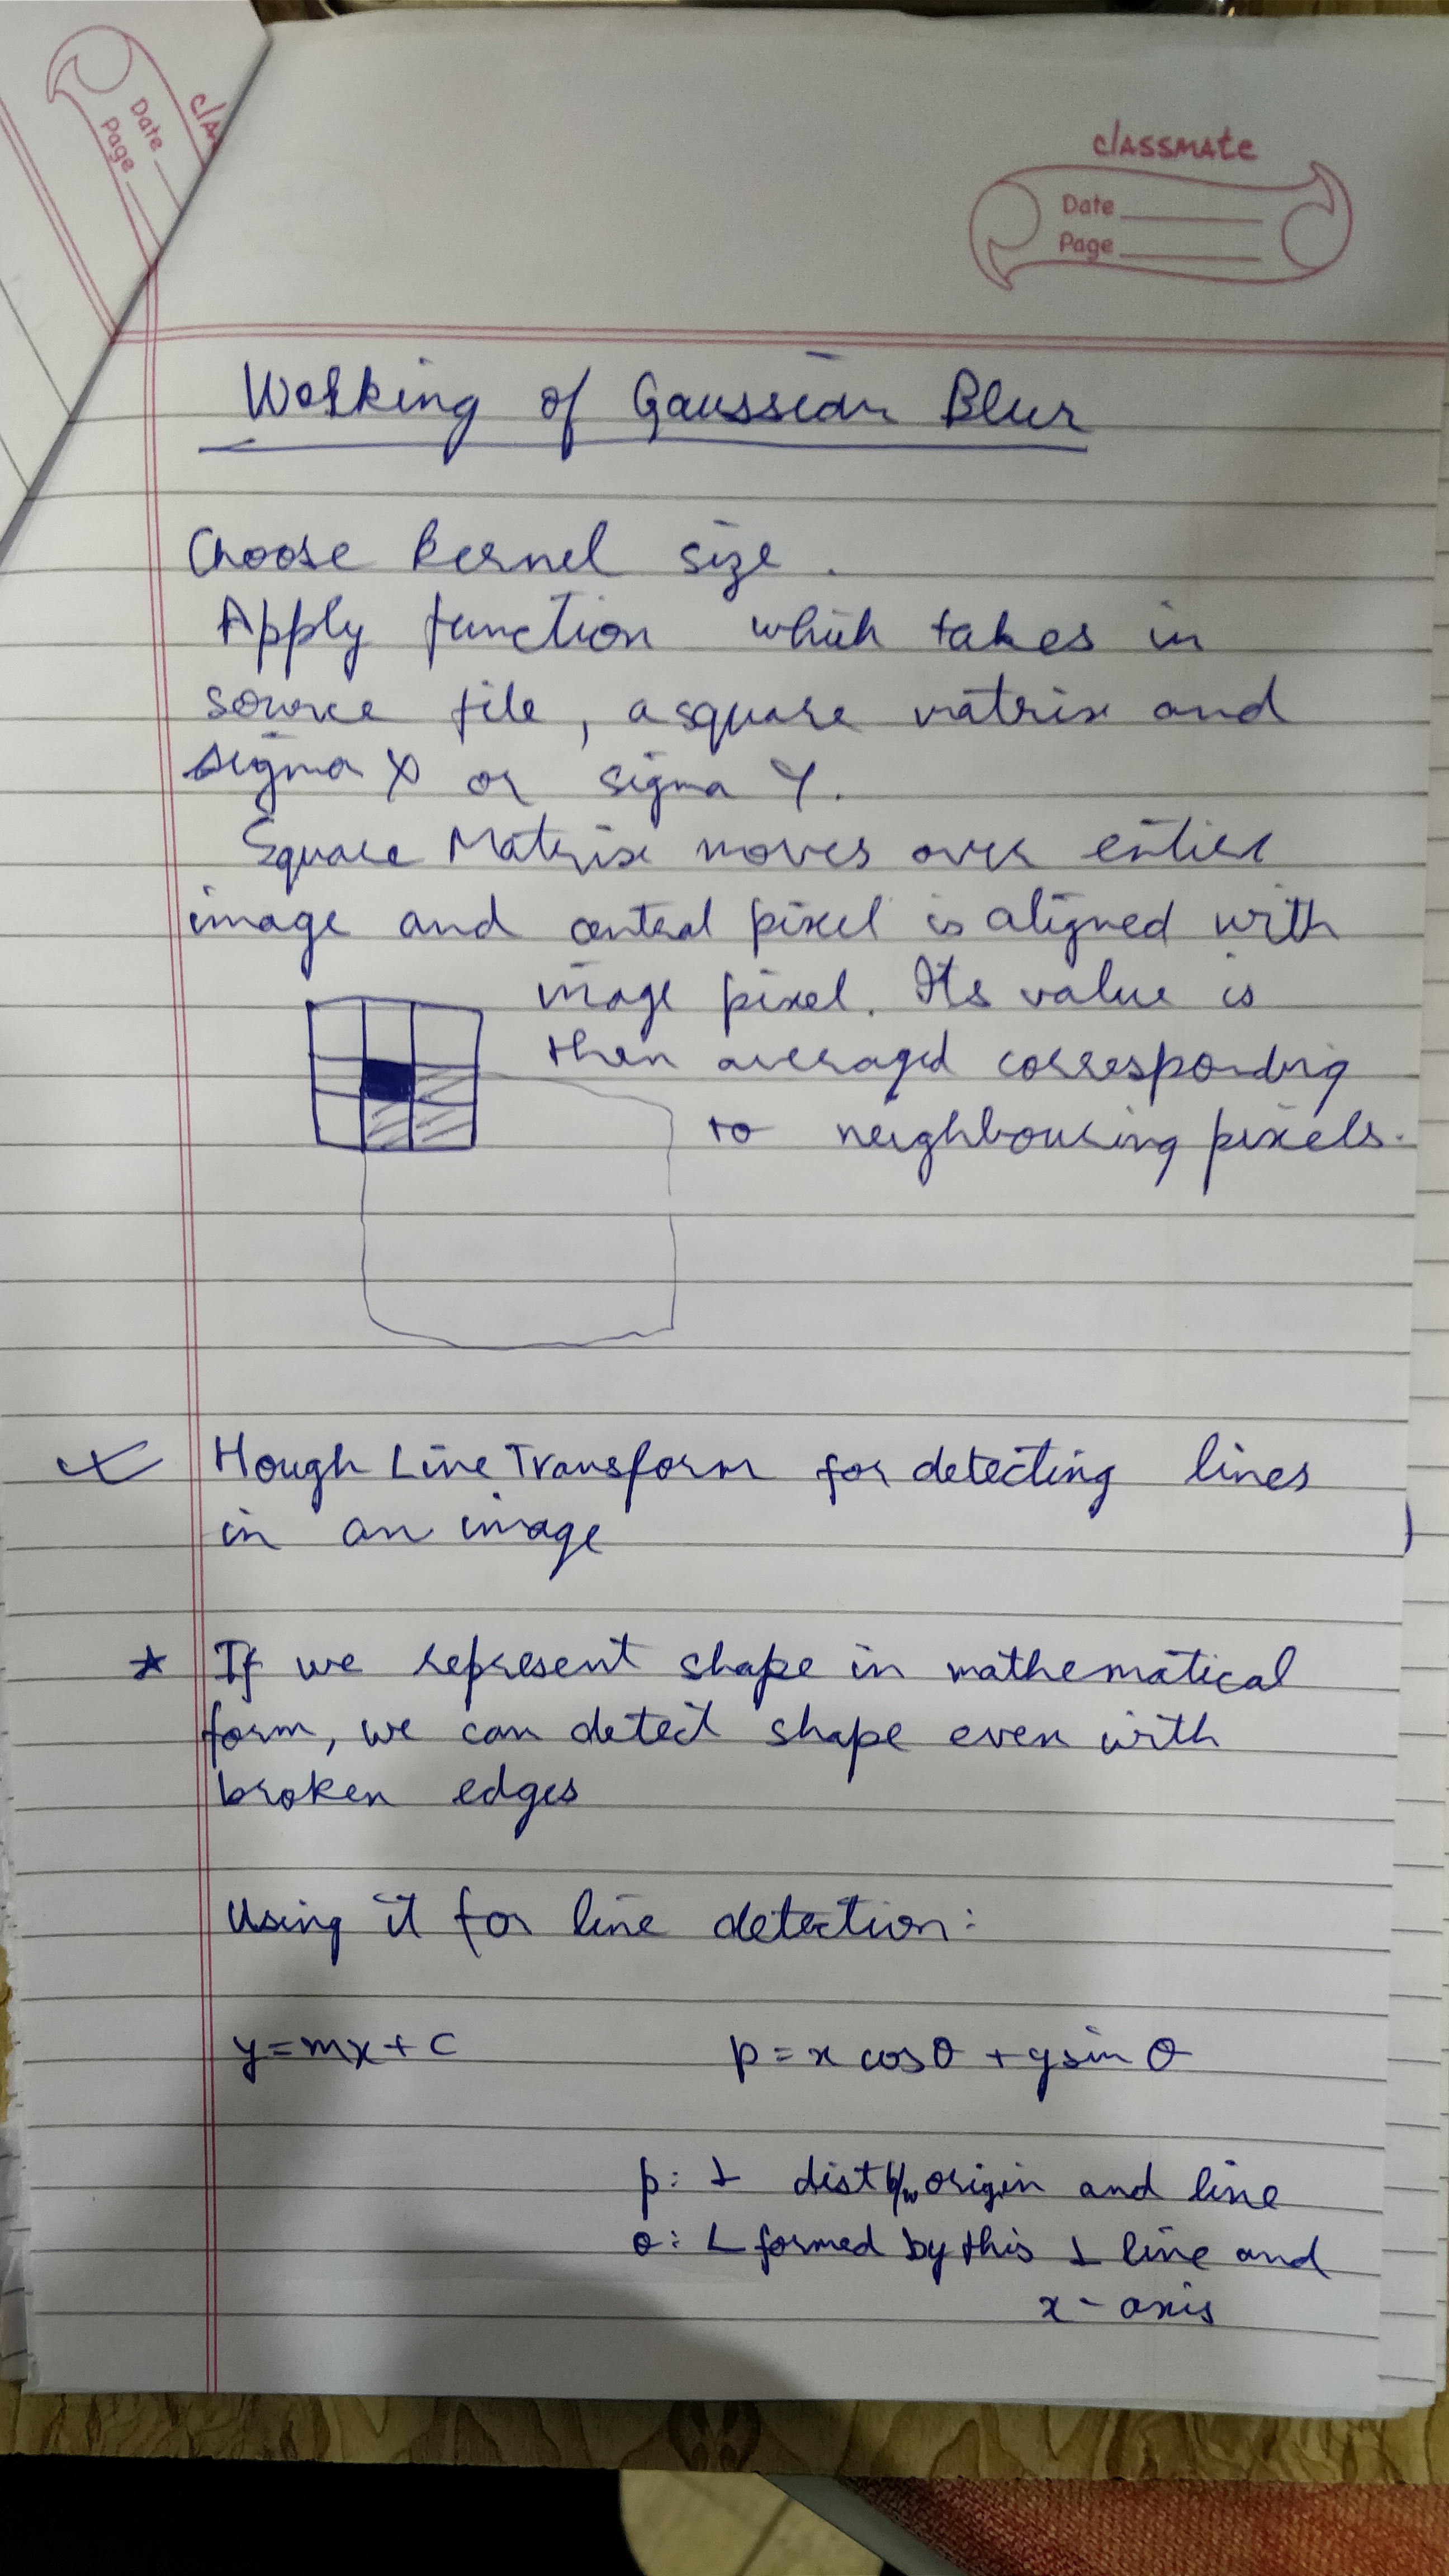 classmate
Date
Page
cla
Date
Page
Working of Gaussian Blur
Choose kernel size.
Apply function which takes in
source file, a square matrix and
sigma X or sigma Y.
Square Matrix moves over entire
image and central pixel is aligned with
image pixel. Its value is
then averaged corresponding
to neighbouring pixels.
Hough Line Transform for detecting lines
in an image
★ If we represent shape in mathematical
form, we can detect shape even with
broken edges
Using it for line detection:
y=mx+c p=x cosθ +ysin θ
p: ⊥ dist b/w origin and line
θ: ∠ formed by this ⊥ line and
x-axis